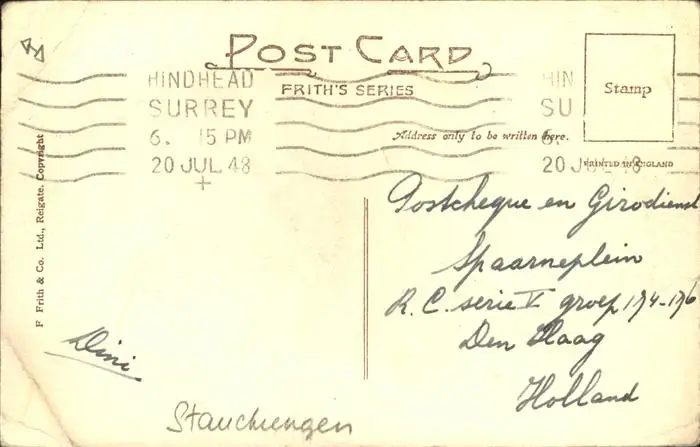 POST CARD
FRITH'S SERIES
Stamp
HINDHEAD
SURREY
6. 15 PM
20 JUL 48
HIN
SU
6.
20 JUL 48
Address only to be written here.
PRINTED IN ENGLAND
F Frith & Co. Ltd., Reigate. Copyright
Postcheque en Girodienst
Spaarneplein
R.C. serie V groep 174-176
Den Haag
Holland
Dini